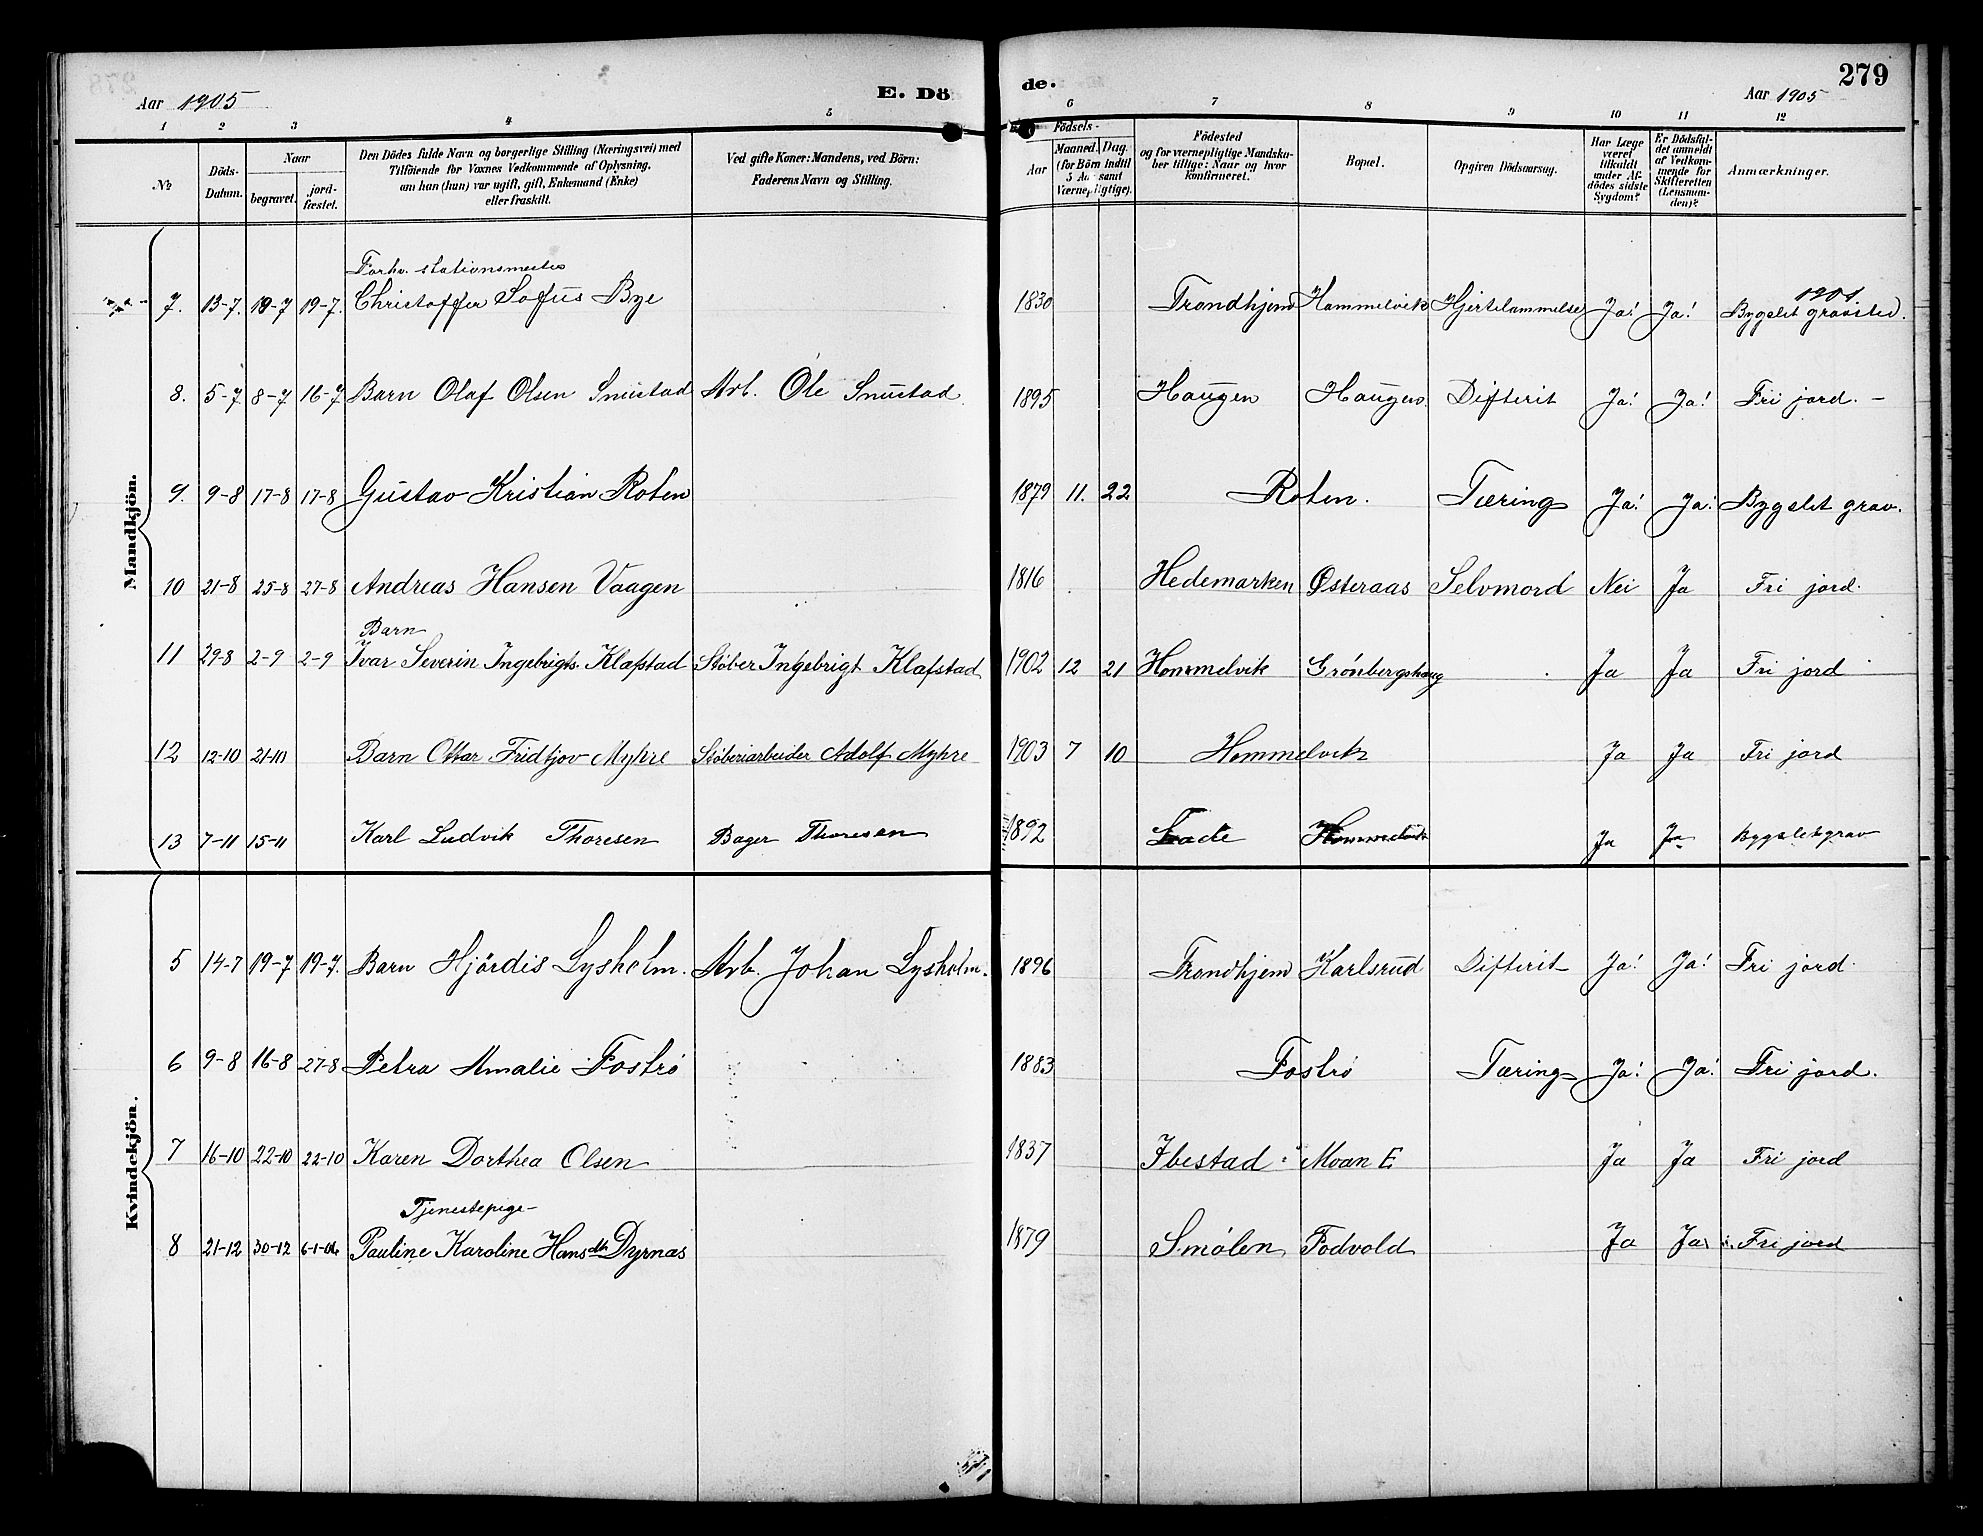 279
Aar 1905 E. Dö de. Aar 1905
1 2 3 4 5 6 7 8 9 10 11 12
№
Döds-Datum.
Naar
begravet.
jord-fæstet.
Den Dödes fulde Navn og borgerlige Stilling (Næringsvei) med
Tilföiende for Voxnes Vedkommende af Oplysning,
om han (hun) var ugift, gift, Enkemand (Enke)
eller fraskilt.
Ved gifte Koner: Mandens, ved Börn:
Faderens Navn og Stilling.
Födsels-
Aar
Maaned. Dag.
(for Börn indtil
5 Aar samt
Værnepligtige).
Födested
og for værnepligtige Mandska-
ber tillige: Naar og hvor
konfirmeret.
Bopæl.
Opgiven Dödsaarsag.
Har Læge
været
tilkaldt
under Af-
dödes sidste
Sygdom?
Er Dödsfal-
det anmeldt
af Vedkom-
mende for
Skifteretten
(Lensman-
den)?
Anmærkninger.
Mandkjön.
Forhv. stationsmester 1901
7. 13-7. 19-7 19-7. Christoffer Sofus Bye 1830 Trondhjem Hommelvik Hjertelammelse Ja! Ja! Bygslet gravsted.
8. 5-7 8-7 16-7 Barn Olaf Olsen Snustad Arb. Ole Snustad. 1895 Haugen Haugen. Difterit Ja! Ja! Fri jord. -
9. 9-8 17-8 17-8 Gustav Kristian Roten 1879 11. 22 Roten. Tæring Ja! Ja! Bygslet grav.
10 21-8 25-8 27-8 Andreas Hansen Vaagen 1816 Hedemarken Østeraas Selvmord Nei Ja Fri jord.
Barn
11 29-8 2-9 2-9 Ivar Severin Ingebrigts. Klafstad Støber Ingebrigt Klafstad 1902 12 21 Hommelvik Grønbergshaug Ja Ja Fri jord
12 12-10 21-10 Barn Ottar Fridtjov Myhre Støberiarbeider Adolf Myhre 1903 7 10 Hommelvik Ja Ja Fri jord
13 7-11 15-11 Karl Ludvik Thoresen Bager Thoresen 1892 Lade Hommelvik Ja Ja Bygsletgrav
Kvindekjön.
5 14-7 19-7 19-7. Barn Hjördis Lysholm. Arb. Johan Lysholm. 1896 Trondhjem Karlsrud Difterit Ja! Ja! Fri jord.
6 9-8 16-8 27-8 Petra Amalie Fostrø 1883 Fostrø Tæring Ja! Ja! Fri jord.
7 16-10 22-10 22-10 Karen Dorthea Olsen 1837 Ibestad Moan E Ja Ja Fri jord
Tjenestepige
8 21-12 30-12 6-1-06 Pauline Karoline Hansdtr Dyrnas 1879 Smølen Fodvold Ja Ja Fri jord